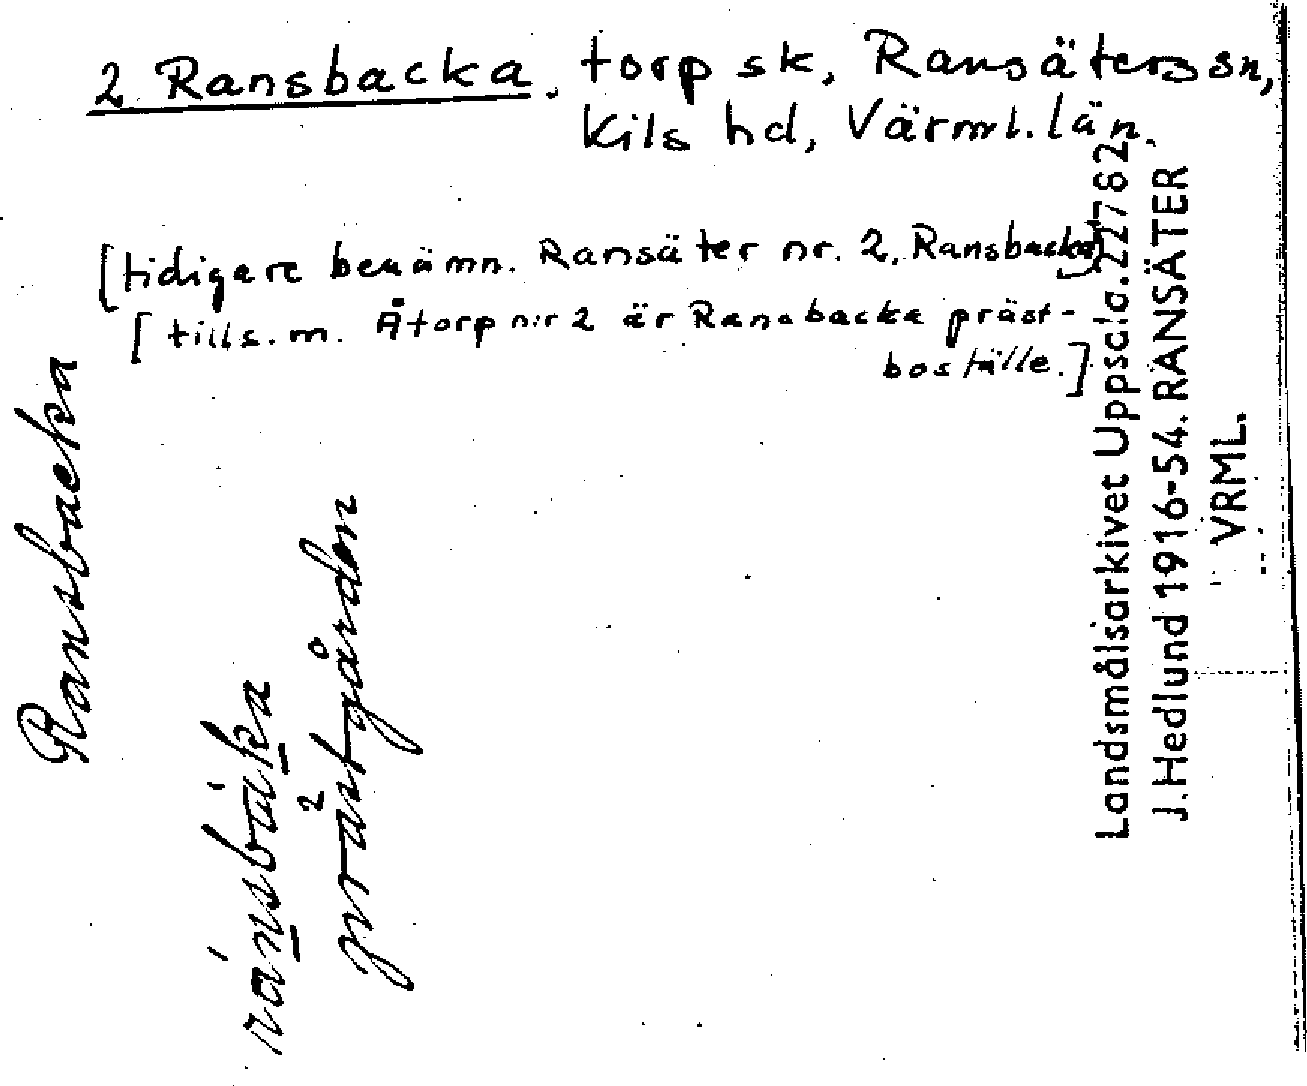 2 Ransbacka, torp sk, Ransäters sn,
Kils hd, Värml. län.
[tidigare benämn. Ransäter nr. 2, Ransbacka]
[tills. m. Åtorp nr 2 är Ransbacka präst-
boställe.]
Ransbacka
ránsbáka
2 prästgården
Landsmålsarkivet Uppsala. 22782
J. Hedlund 1916-54. RANSÄTER
VRML.